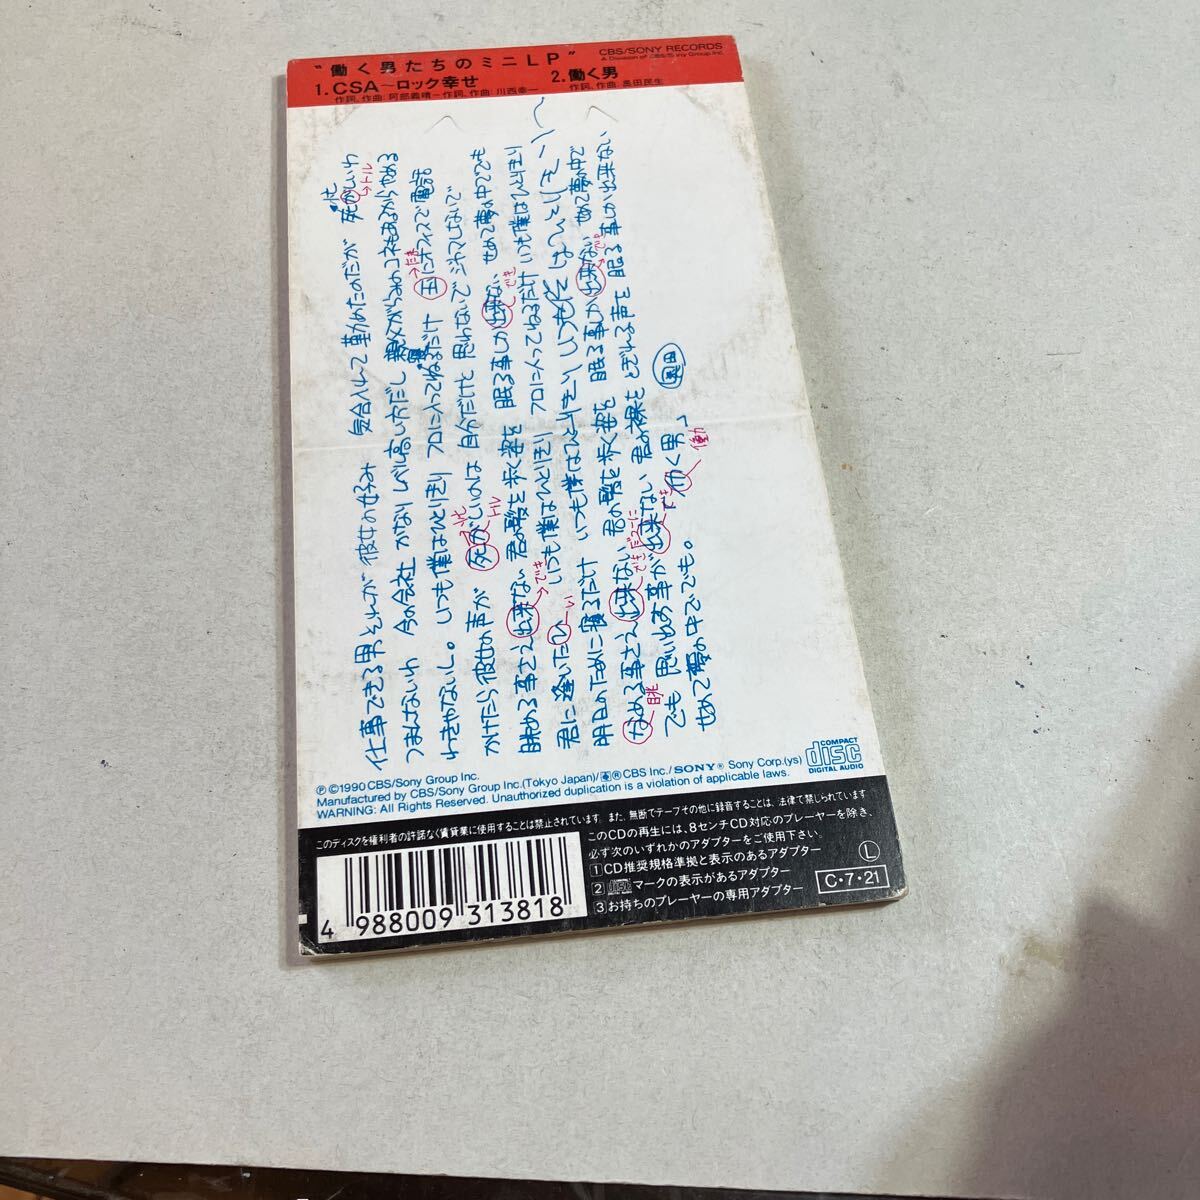 "働く男たちのミニLP"
CBS/SONY RECORDS
A Division of CBS/Sony Group Inc.
1.CSA〜ロック幸せ
2.働く男
作詞、作曲：阿部義晴〜作詞、作曲：川西幸一
作詞、作曲：奥田民生
仕事できる男それが彼女の好み 気合入れて勤めたのだが 死がいわ
つまんないわ 今の会社 かなりレベル高い方だし 親父がらみのコネもあるからやめる
わきゃないし。いつも僕はひとりきり フロに入ってねるだけ 玉にオフィスで電話
かけたら彼女の声が 死がいのは 自分だけと思わないで ジャマしないで
眺める事さえ出来ない 君の髪を歩く姿を 眠る事しか出来ない せめて夢の中ででも
君に逢いたひ いつも僕はひとりきり フロに入ってねるだけ いつも僕はひとりきり
明日のために寝るだけ いつも僕はひとりきり いつもぼくはひとりきり〜
なめる事さえ出来ない 君の髪を歩く姿を 眠る事しか出来ない せめて夢の中で
でも 思いやる事が出来ない 君の裸をとぎれる声を 眠る事しか出来ない
せめて夢の中ででも。
「働く男」
奥田
トル
トル
でき
でき
でき
働
眺
℗©1990 CBS/Sony Group Inc.
Manufactured by CBS/Sony Group Inc.(Tokyo Japan)/ ® CBS Inc./SONY® Sony Corp.(ys)
WARNING: All Rights Reserved. Unauthorized duplication is a violation of applicable laws.
COMPACT
disc
DIGITAL AUDIO
このディスクを権利者の許諾なく賃貸業に使用することは禁止されています。また、無断でテープその他に録音することは、法律で禁じられています
このCDの再生には、8センチCD対応のプレーヤーを除き、
必ず次のいずれかのアダプターをご使用下さい。
1 CD推奨規格準拠と表示のあるアダプター
2 disc マークの表示があるアダプター
3 お持ちのプレーヤーの専用アダプター
L
C・7・21
4 988009 313818